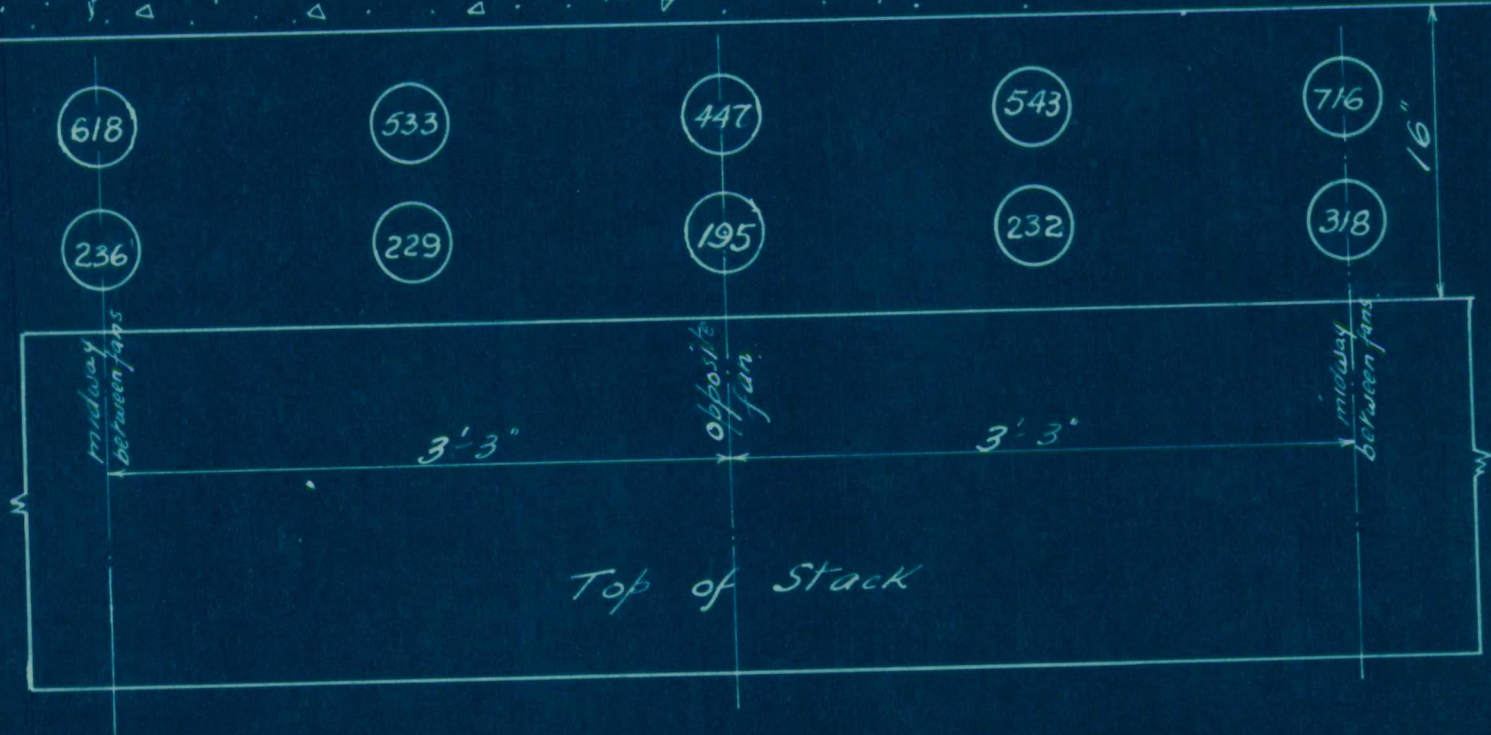 618 533 447 543 716
16"
236 229 195 232 318
midway
between fans
opposite
fan
midway
between fans
3'-3" 3'-3"
Top of Stack